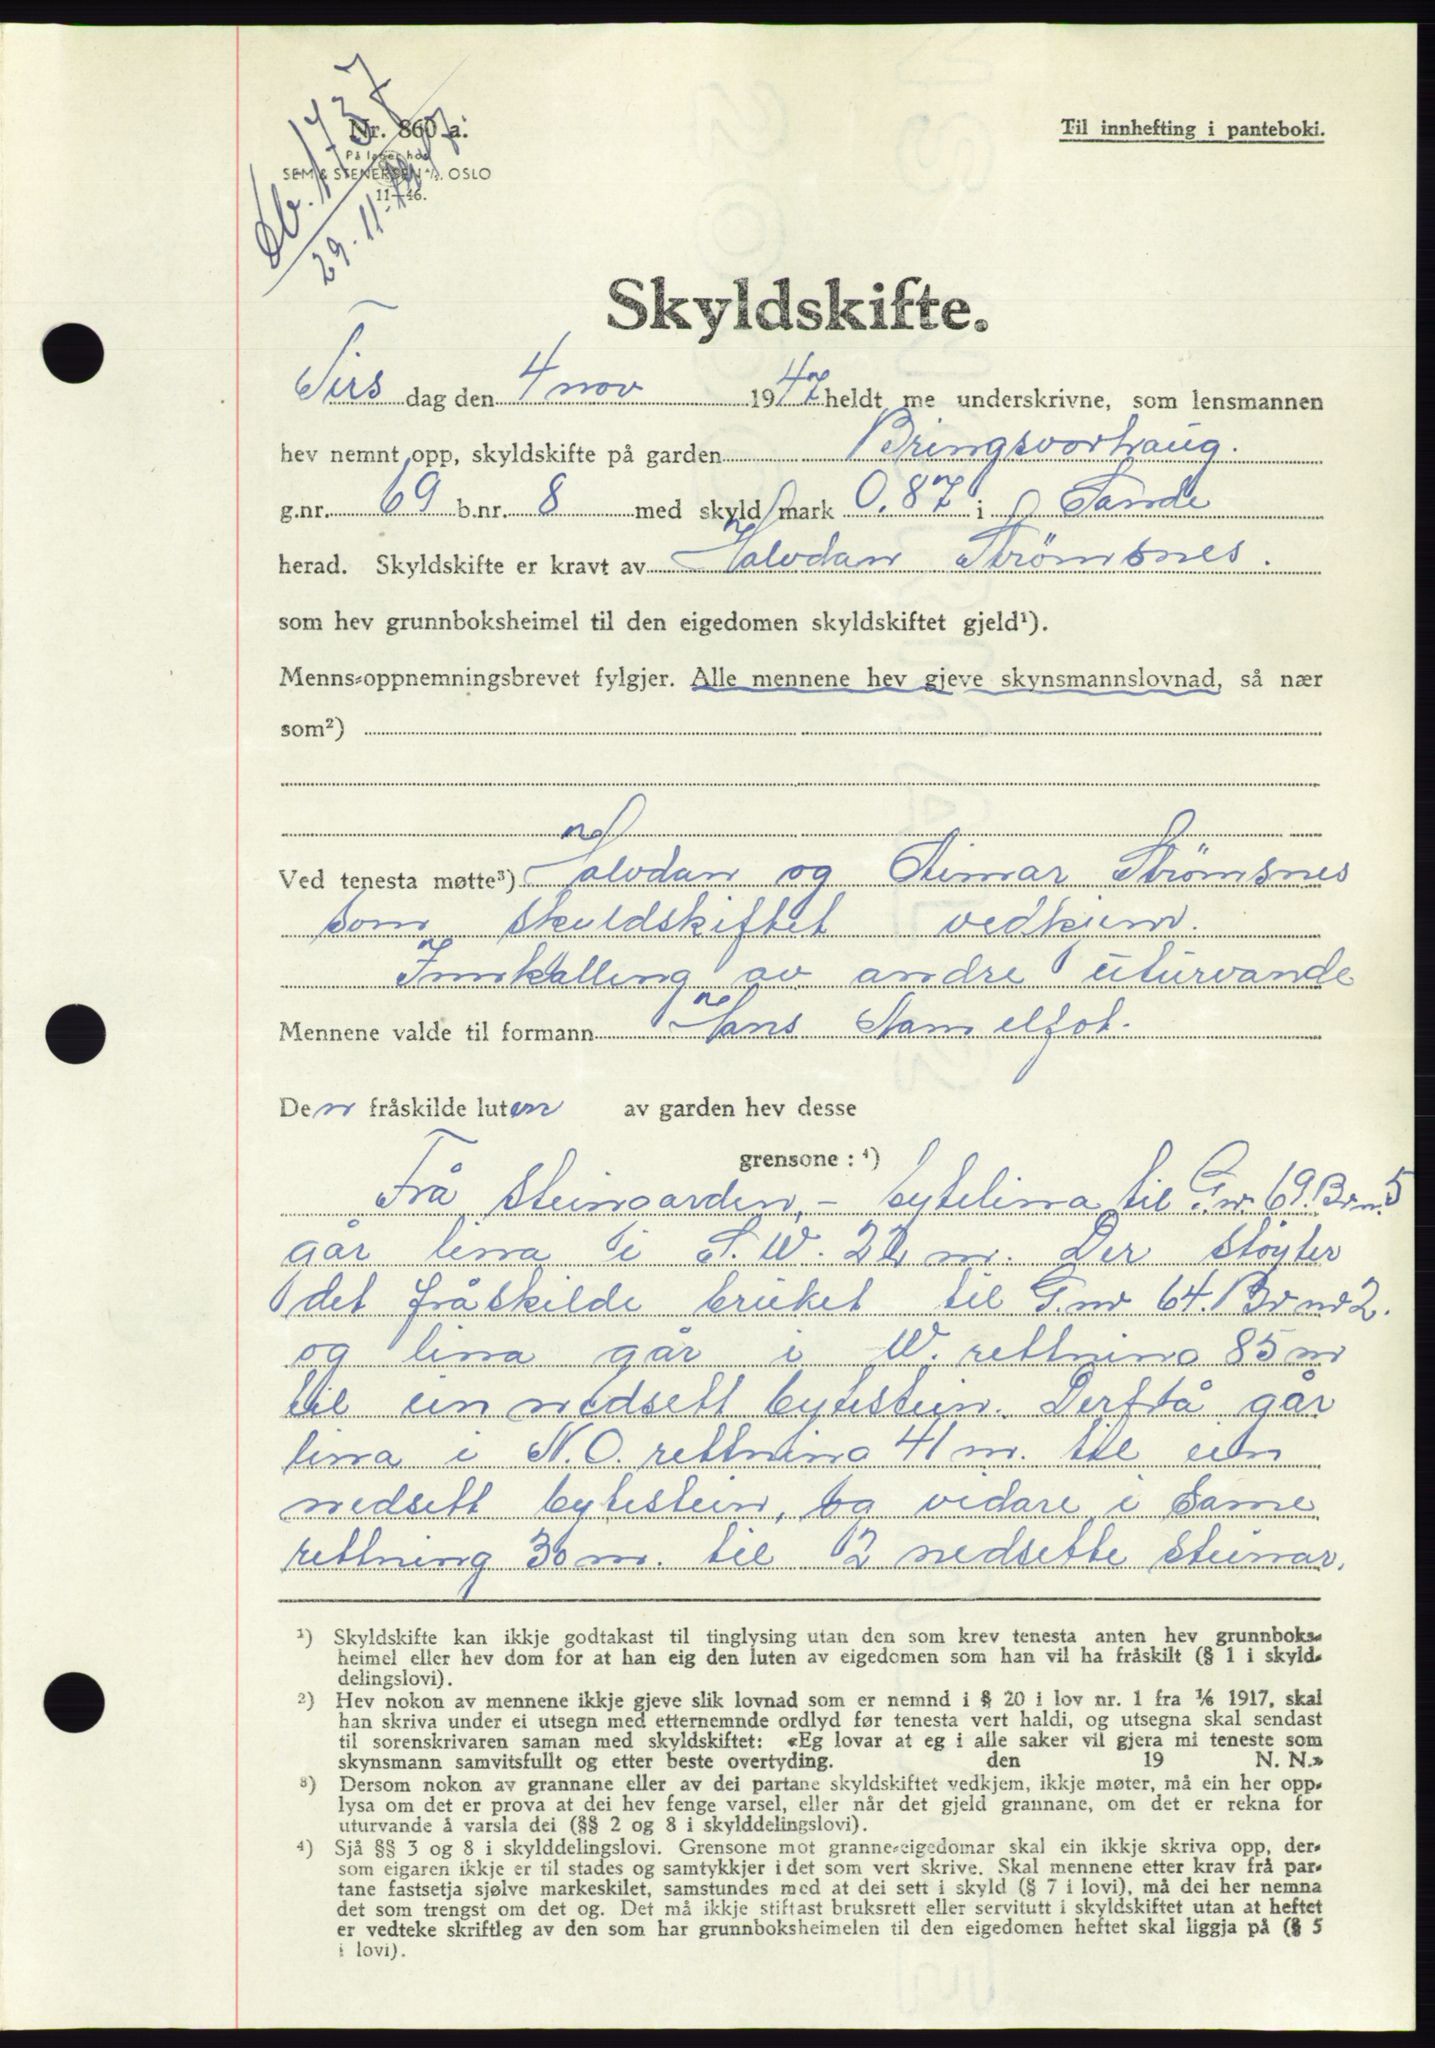 Db. 1737
29.11.1947.
Nr. 860 a.
På lager hos
SEM & STENERSEN A/S, OSLO
11—46.
Til innhefting i panteboki.
Skyldskifte.
Tirs dag den 4 nov 1947 heldt me underskrivne, som lensmannen
hev nemnt opp, skyldskifte på garden Bringsvorhaug.
g.nr. 69 b.nr. 8 med skyld mark 0.87 i Sande
herad. Skyldskifte er kravt av Halvdan Strømsnes.
som hev grunnboksheimel til den eigedomen skyldskiftet gjeld¹).
Menns-oppnemningsbrevet fylgjer. Alle mennene hev gjeve skynsmannslovnad, så nær
som²)
Ved tenesta møtte³) Halvdan og Steinar Strömsnes
som skuldskiftet vedkjem.
Innkalling av andre uturvande
Mennene valde til formann Hans
Den fråskilde luten av garden hev desse
grensone : ⁴)
Frå steingarden, – bytelina til G.nr. 69. Br.nr. 5
går lina i S.W. 22 m. Der støyter
det fråskilde bruket til G.nr 64. Br nr 2.
og lina går i W. rettning 85 m
til ein nedsett bytestein. Derfrå går
lina i N.O. rettning 41 m. til ein
nedsett bytestein, og vidare i same
rettning 30 m. til 2 nedsette steinar.
¹) Skyldskifte kan ikkje godtakast til tinglysing utan den som krev tenesta anten hev grunnboks-
heimel eller hev dom for at han eig den luten av eigedomen som han vil ha fråskilt (§ 1 i skyld-
delingslovi).
²) Hev nokon av mennene ikkje gjeve slik lovnad som er nemnd i § 20 i lov nr. 1 fra 1/6 1917, skal
han skriva under ei utsegn med etternemnde ordlyd før tenesta vert haldi, og utsegna skal sendast
til sorenskrivaren saman med skyldskiftet: «Eg lovar at eg i alle saker vil gjera mi teneste som
skynsmann samvitsfullt og etter beste overtyding. den 19 N. N.»
³) Dersom nokon av grannane eller av dei partane skyldskiftet vedkjem, ikkje møter, må ein her opp-
lysa om det er prova at dei hev fenge varsel, eller når det gjeld grannane, om det er rekna for
uturvande å varsla dei (§§ 2 og 8 i skylddelingslovi).
⁴) Sjå §§ 3 og 8 i skylddelingslovi. Grensone mot granne-eigedomar skal ein ikkje skriva opp, der-
som eigaren ikkje er til stades og samtykkjer i det som vert skrive. Skal mennene etter krav frå par-
tane fastsetja sjølve markeskilet, samstundes med at dei sett i skyld (§ 7 i lovi), må dei her nemna
det som trengst om det og. Det må ikkje stiftast bruksrett eller servitutt i skyldskiftet utan at heftet
er vedteke skriftleg av den som har grunnboksheimelen til den eigedomen heftet skal liggja på (§ 5
i lovi).